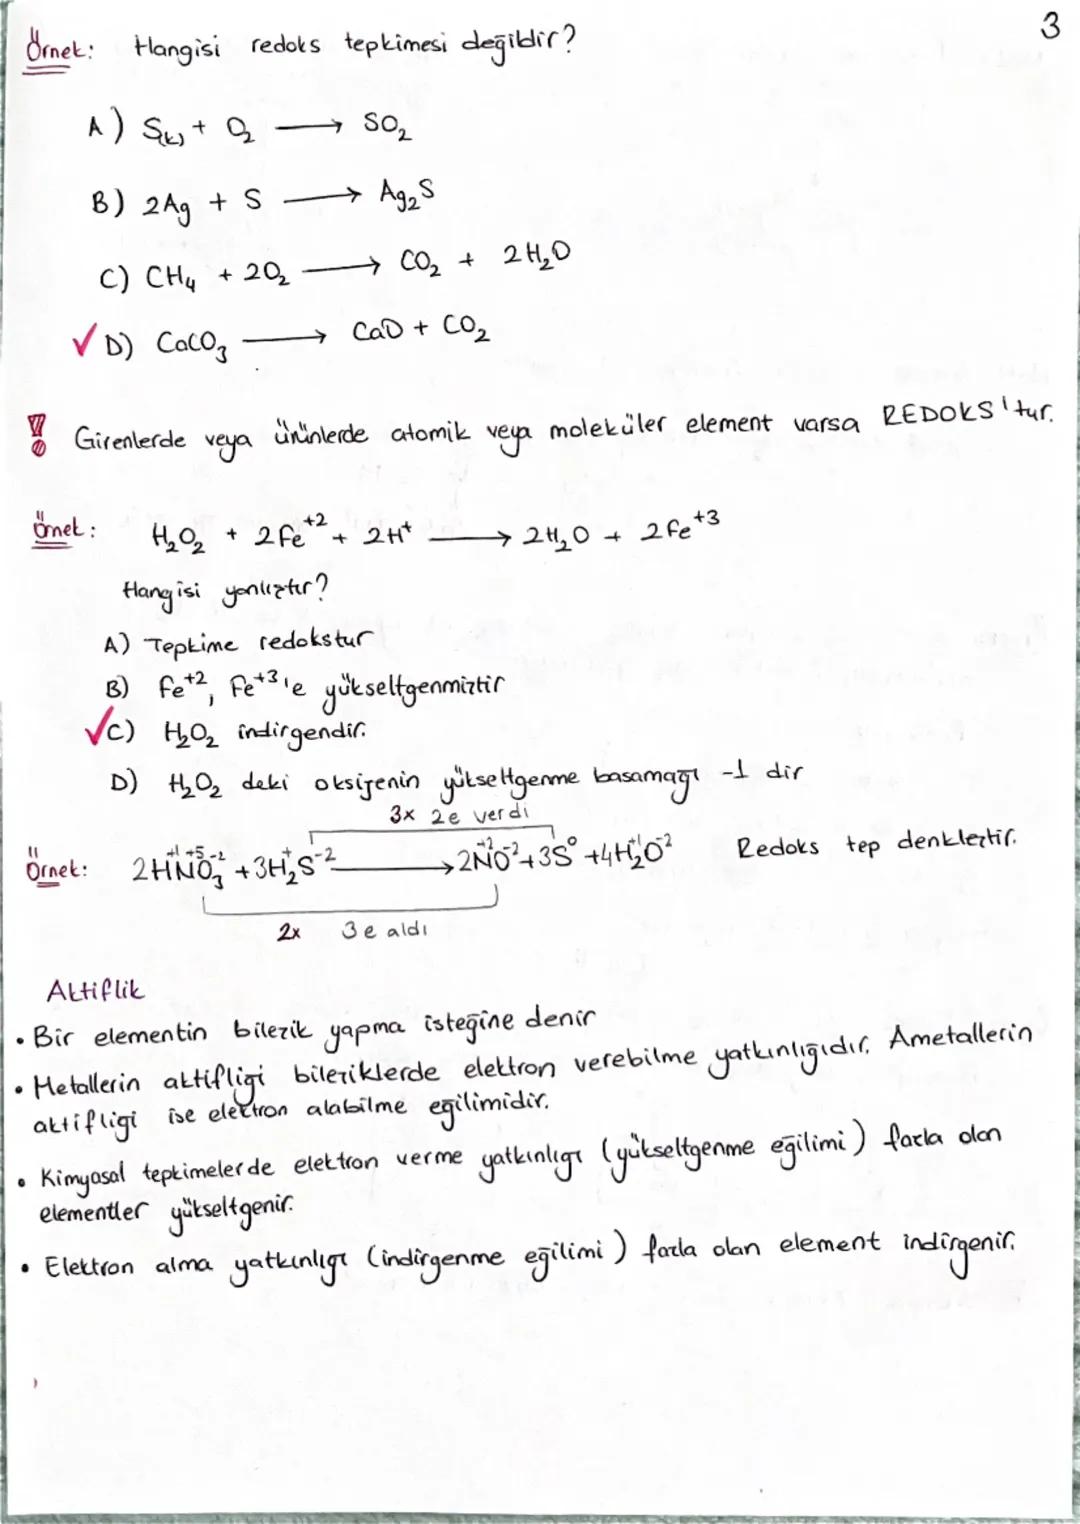 3
Örnek: Hangisi redoks tepkimesi değildir?
A) S(k) + O₂ → SO₂
B) 2Ag + S → Ag₂S
C) CH₄ + 2O₂ → CO₂ + 2H₂O
✓ D) CaCO₃ → CaO + CO₂
!! Girenlerde veya ürünlerde atomik veya moleküler element varsa REDOKS'tur.
Örnek: H₂O₂ + 2Fe⁺² + 2H⁺ → 2H₂O + 2Fe⁺³
Hangisi yanlıştır?
A) Tepkime redokstur
B) Fe⁺², Fe⁺³'e yükseltgenmiştir
✓ C) H₂O₂ indirgendir.
D) H₂O₂ deki oksijenin yükseltgenme basamağı -1 dir
3x 2e verdi
Örnek: 2H⁺¹N⁺⁵O₃⁻² + 3H₂⁺S⁻² → 2N⁺²O⁻² + 3S⁰ + 4H₂⁺¹O⁻² Redoks tep denkleştir.
2x 3e aldı
Aktiflik
• Bir elementin bileşik yapma isteğine denir
• Metallerin aktifliği bileşiklerde elektron verebilme yatkınlığıdır. Ametallerin
aktifliği ise elektron alabilme eğilimidir.
• Kimyasal tepkimelerde elektron verme yatkınlığı (yükseltgenme eğilimi) fazla olan
elementler yükseltgenir.
• Elektron alma yatkınlığı (indirgenme eğilimi) fazla olan element indirgenir.